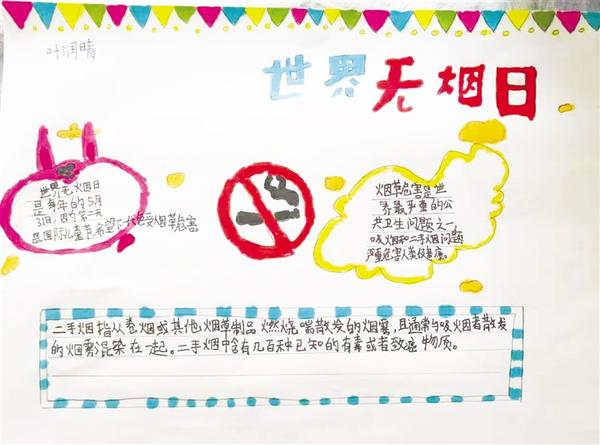 叶润晴
世界无烟日
世界无烟日
是每年的5月
31日,因为第二天
是国际儿童节,希望下一代免受烟草危害。
烟草危害是世
界最严重的公
共卫生问题之一,
吸烟和二手烟问题
严重危害人类健康。
二手烟指从卷烟或其他烟草制品燃烧端散发的烟雾,且通常与吸烟者散发
的烟雾混杂在一起。二手烟中含有几百种已知的有毒或者致癌物质。